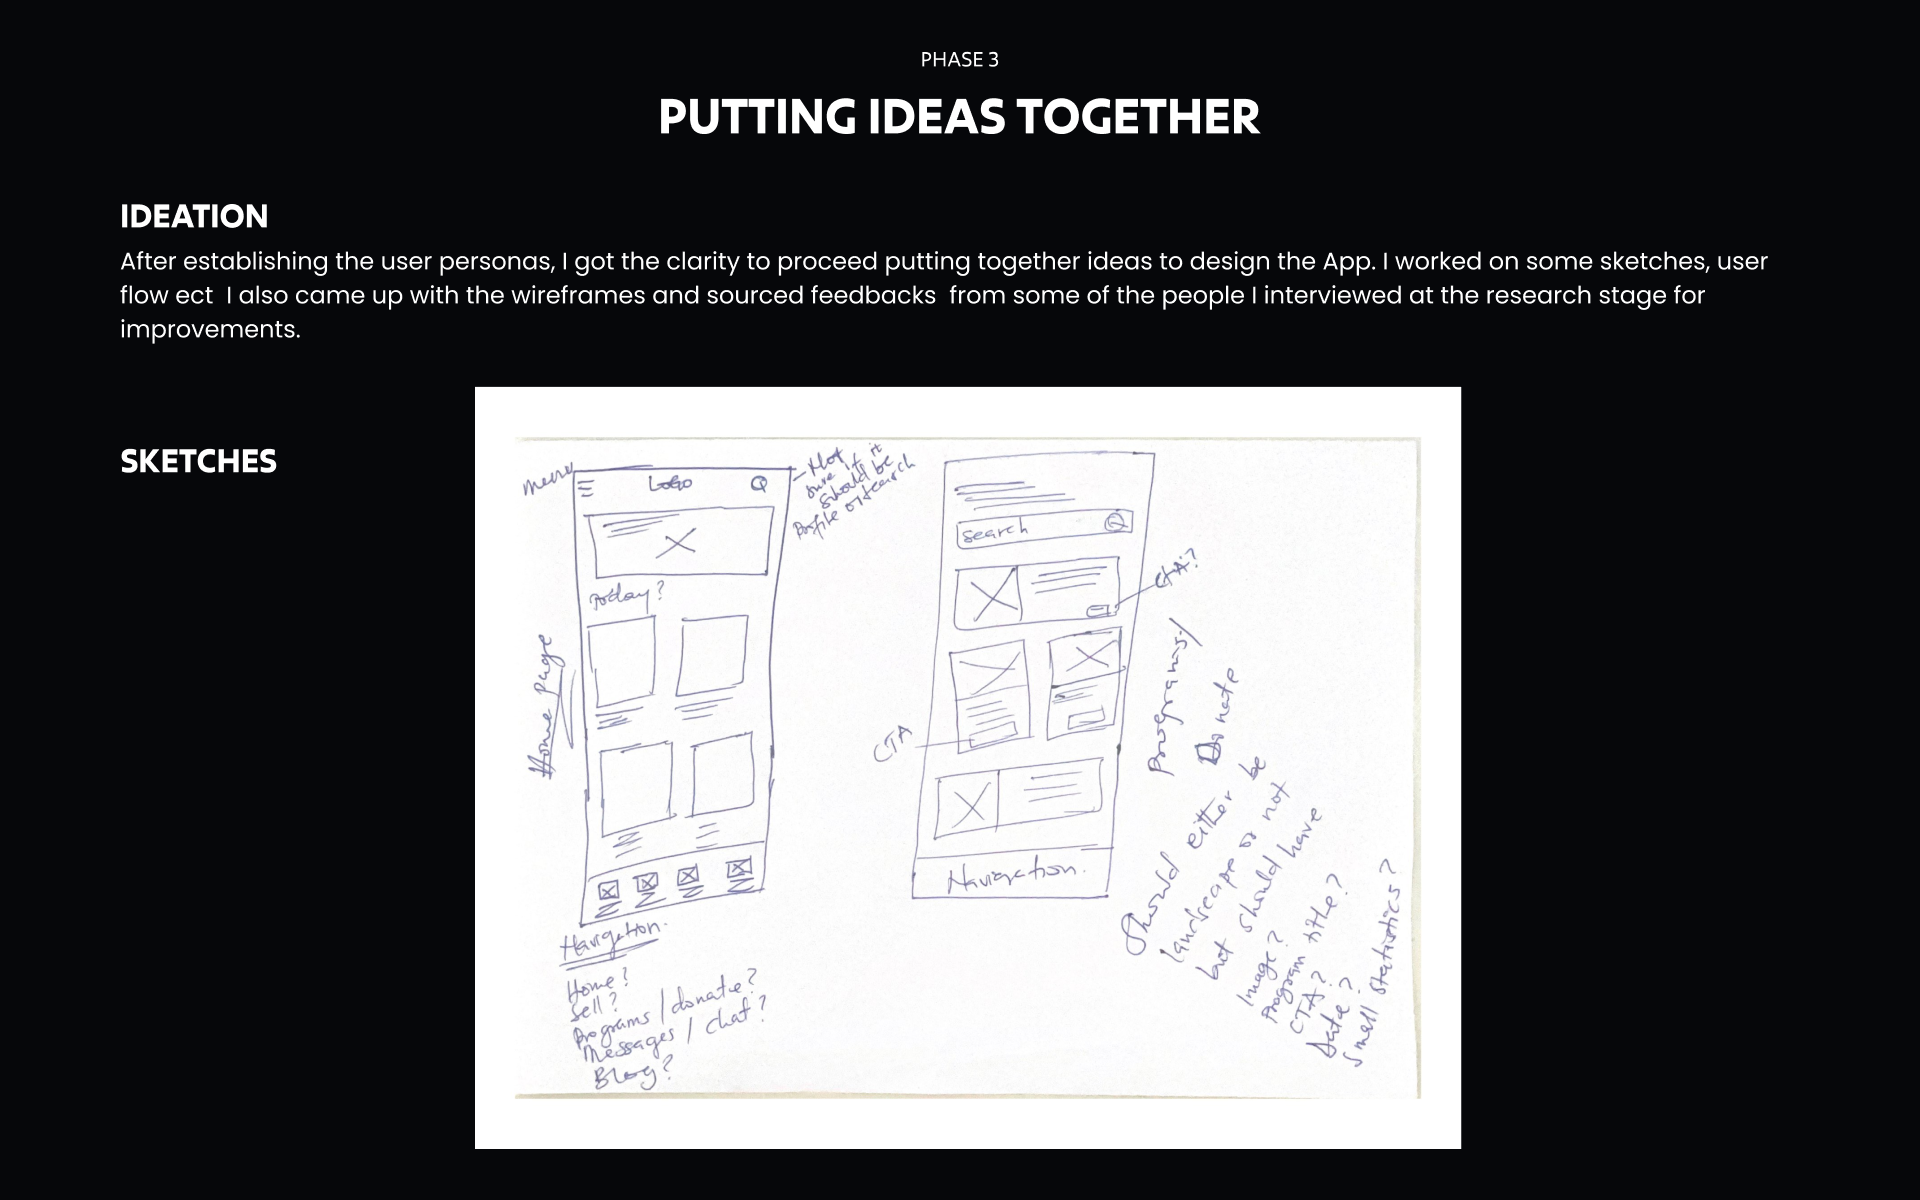 PHASE 3
PUTTING IDEAS TOGETHER
IDEATION
After establishing the user personas, I got the clarity to proceed putting together ideas to design the App. I worked on some sketches, user
flow ect  I also came up with the wireframes and sourced feedbacks  from some of the people I interviewed at the research stage for
improvements.
SKETCHES
menu
Logo
- Not
sure if it
should be
Profile or search
Today?
Home page
Navigation.
Home?
Sell?
Programs / donate?
Messages / chat?
Blog?
search
CTA?
CTA
Navigation.
Programs/
Donate
Should either be
landscape or not
but should have
Image?
Program title?
CTA?
Date?
Small Statistics?